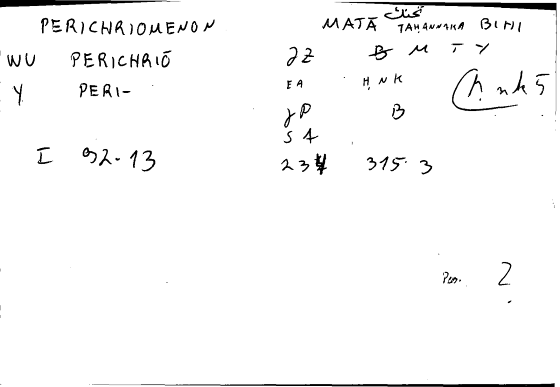 PERICHRIOMENON
WU PERICHRIŌ
Y PERI-
I 92-13
MATĀ تحنك TAHANNAKA BIHI
JZ B M T Y
EA Ḥ N K
ḥnk 5
JP B
S 4
234 315.3
2